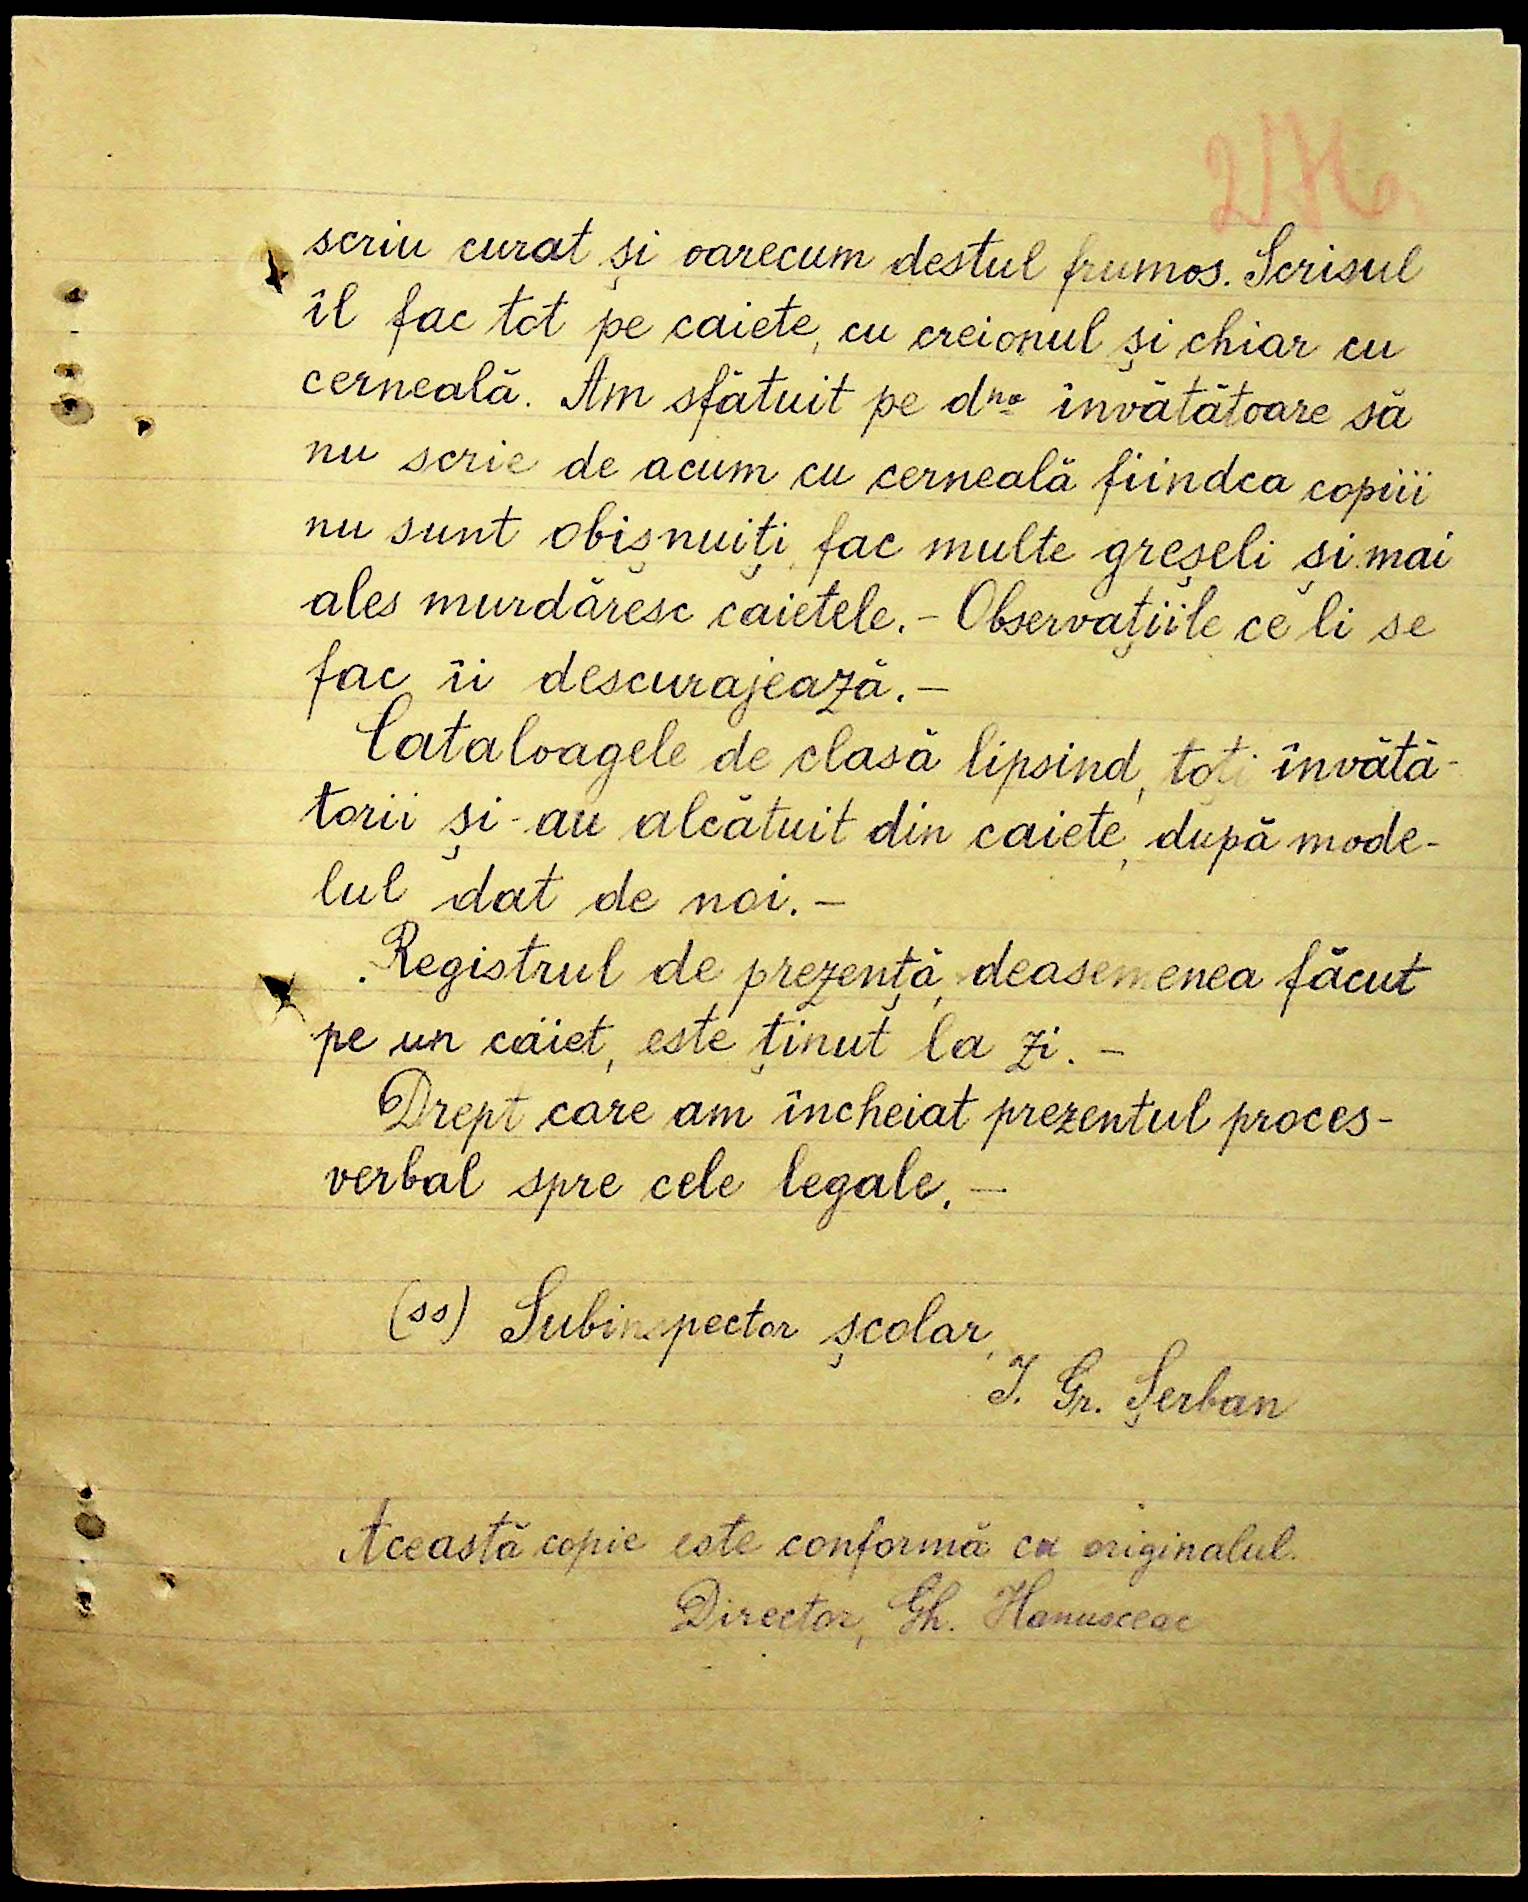 scriu curat și oarecum destul frumos. Scrisul
îl fac tot pe caiete, cu creionul și chiar cu
cerneală. Am sfătuit pe dna învătătoare să
nu scrie de acum cu cerneală fiindca copiii
nu sunt obișnuiți, fac multe greșeli și mai
ales murdăresc caietele.- Observațiile ce li se
fac îi descurajează.-
Cataloagele de clasă lipsind, toți învătă-
torii și-au alcătuit din caiete, după mode-
lul dat de noi.-
Registrul de prezență, deasemenea făcut
pe un caiet, este ținut la zi.-
Drept care am încheiat prezentul proces-
verbal spre cele legale.-
(ss) Subinspector școlar,
I. Gr. Șerban
Această copie este conformă cu originalul.
Director, Gh. Hanusceac